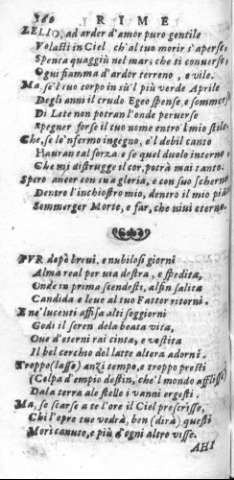 360 RIME
ZELIO, ad arder d'amor puro gentile
Volasti in Ciel ch'al tuo morir s'aperse,
Spenta quaggiù nel mar, che ti conuerse
Ogni fiamma d'ardor terreno, e vile.
Ma se'l tuo corpo in sù'l più verde Aprile
Degli anni il crudo Egeo spense, e sommerse
Di Lete non potran l'onde peruerse
Spegner forse il tuo nome entro l mio stile.
Che, se lo'nfermo ingegno, e'l debil canto
Hauran tal forza, e se quel duolo interno
Che mi distrugge il cor, potrà mai tanto.
Spero ancor con tua gloria, e con suo scherno
Dentro l'inchiostro mio, dentro il mio pian
Sommerger Morte, e far, che viui eterno.
PVR dopò breui, e nubilosi giorni
Alma real per via destra, e spedita,
Onde in prima scendesti, alfin salita
Candida e lieue al tuo Fattor ritorni.
E ne' lucenti assisa alti soggiorni
Godi il seren dela beata vita,
Oue d'eterni rai cinta, e vestita
Il bel cerchio del latte altera adorni.
Troppo (lasso) anzi tempo, e troppo presti
(Colpa d'empio destin, che'l mondo afflisse)
Dala terra ale stelle i vanni ergesti.
Ma, se scarse a te l'ore il Ciel prescrisse,
Chi l'opre tue vedrà, ben (dirà) questi
Morì canuto, e più d'ogni altro visse.
AHI